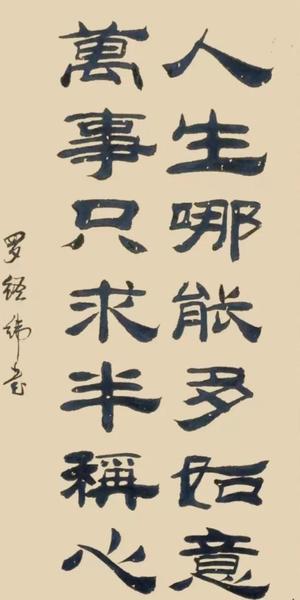 人生哪能多如意
萬事只求半稱心
罗经纬书